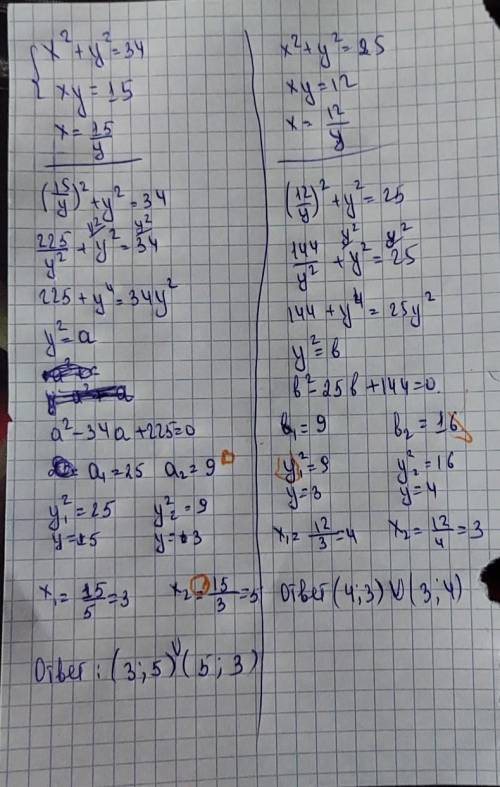 x² + y² = 34
xy = 15
x = 15/y
(15/y)² + y² = 34
225/y² + y² = 34
y² y²
225 + y⁴ = 34y²
y² = a
a² - 34a + 225 = 0
a₁ = 25 a₂ = 9
y₁² = 25 y₂² = 9
y = 5 y = 3
x₁ = 15/5 = 3 x₂ = 15/3 = 5
Ответ: (3; 5) ∪ (5; 3)
x² + y² = 25
xy = 12
x = 12/y
(12/y)² + y² = 25
144/y² + y² = 25
y² y²
144 + y⁴ = 25y²
y² = в
в² - 25в + 144 = 0
в₁ = 9 в₂ = 16
y₁² = 9 y₂² = 16
y = 3 y = 4
x₁ = 12/3 = 4 x₂ = 12/4 = 3
Ответ (4; 3) ∪ (3; 4)